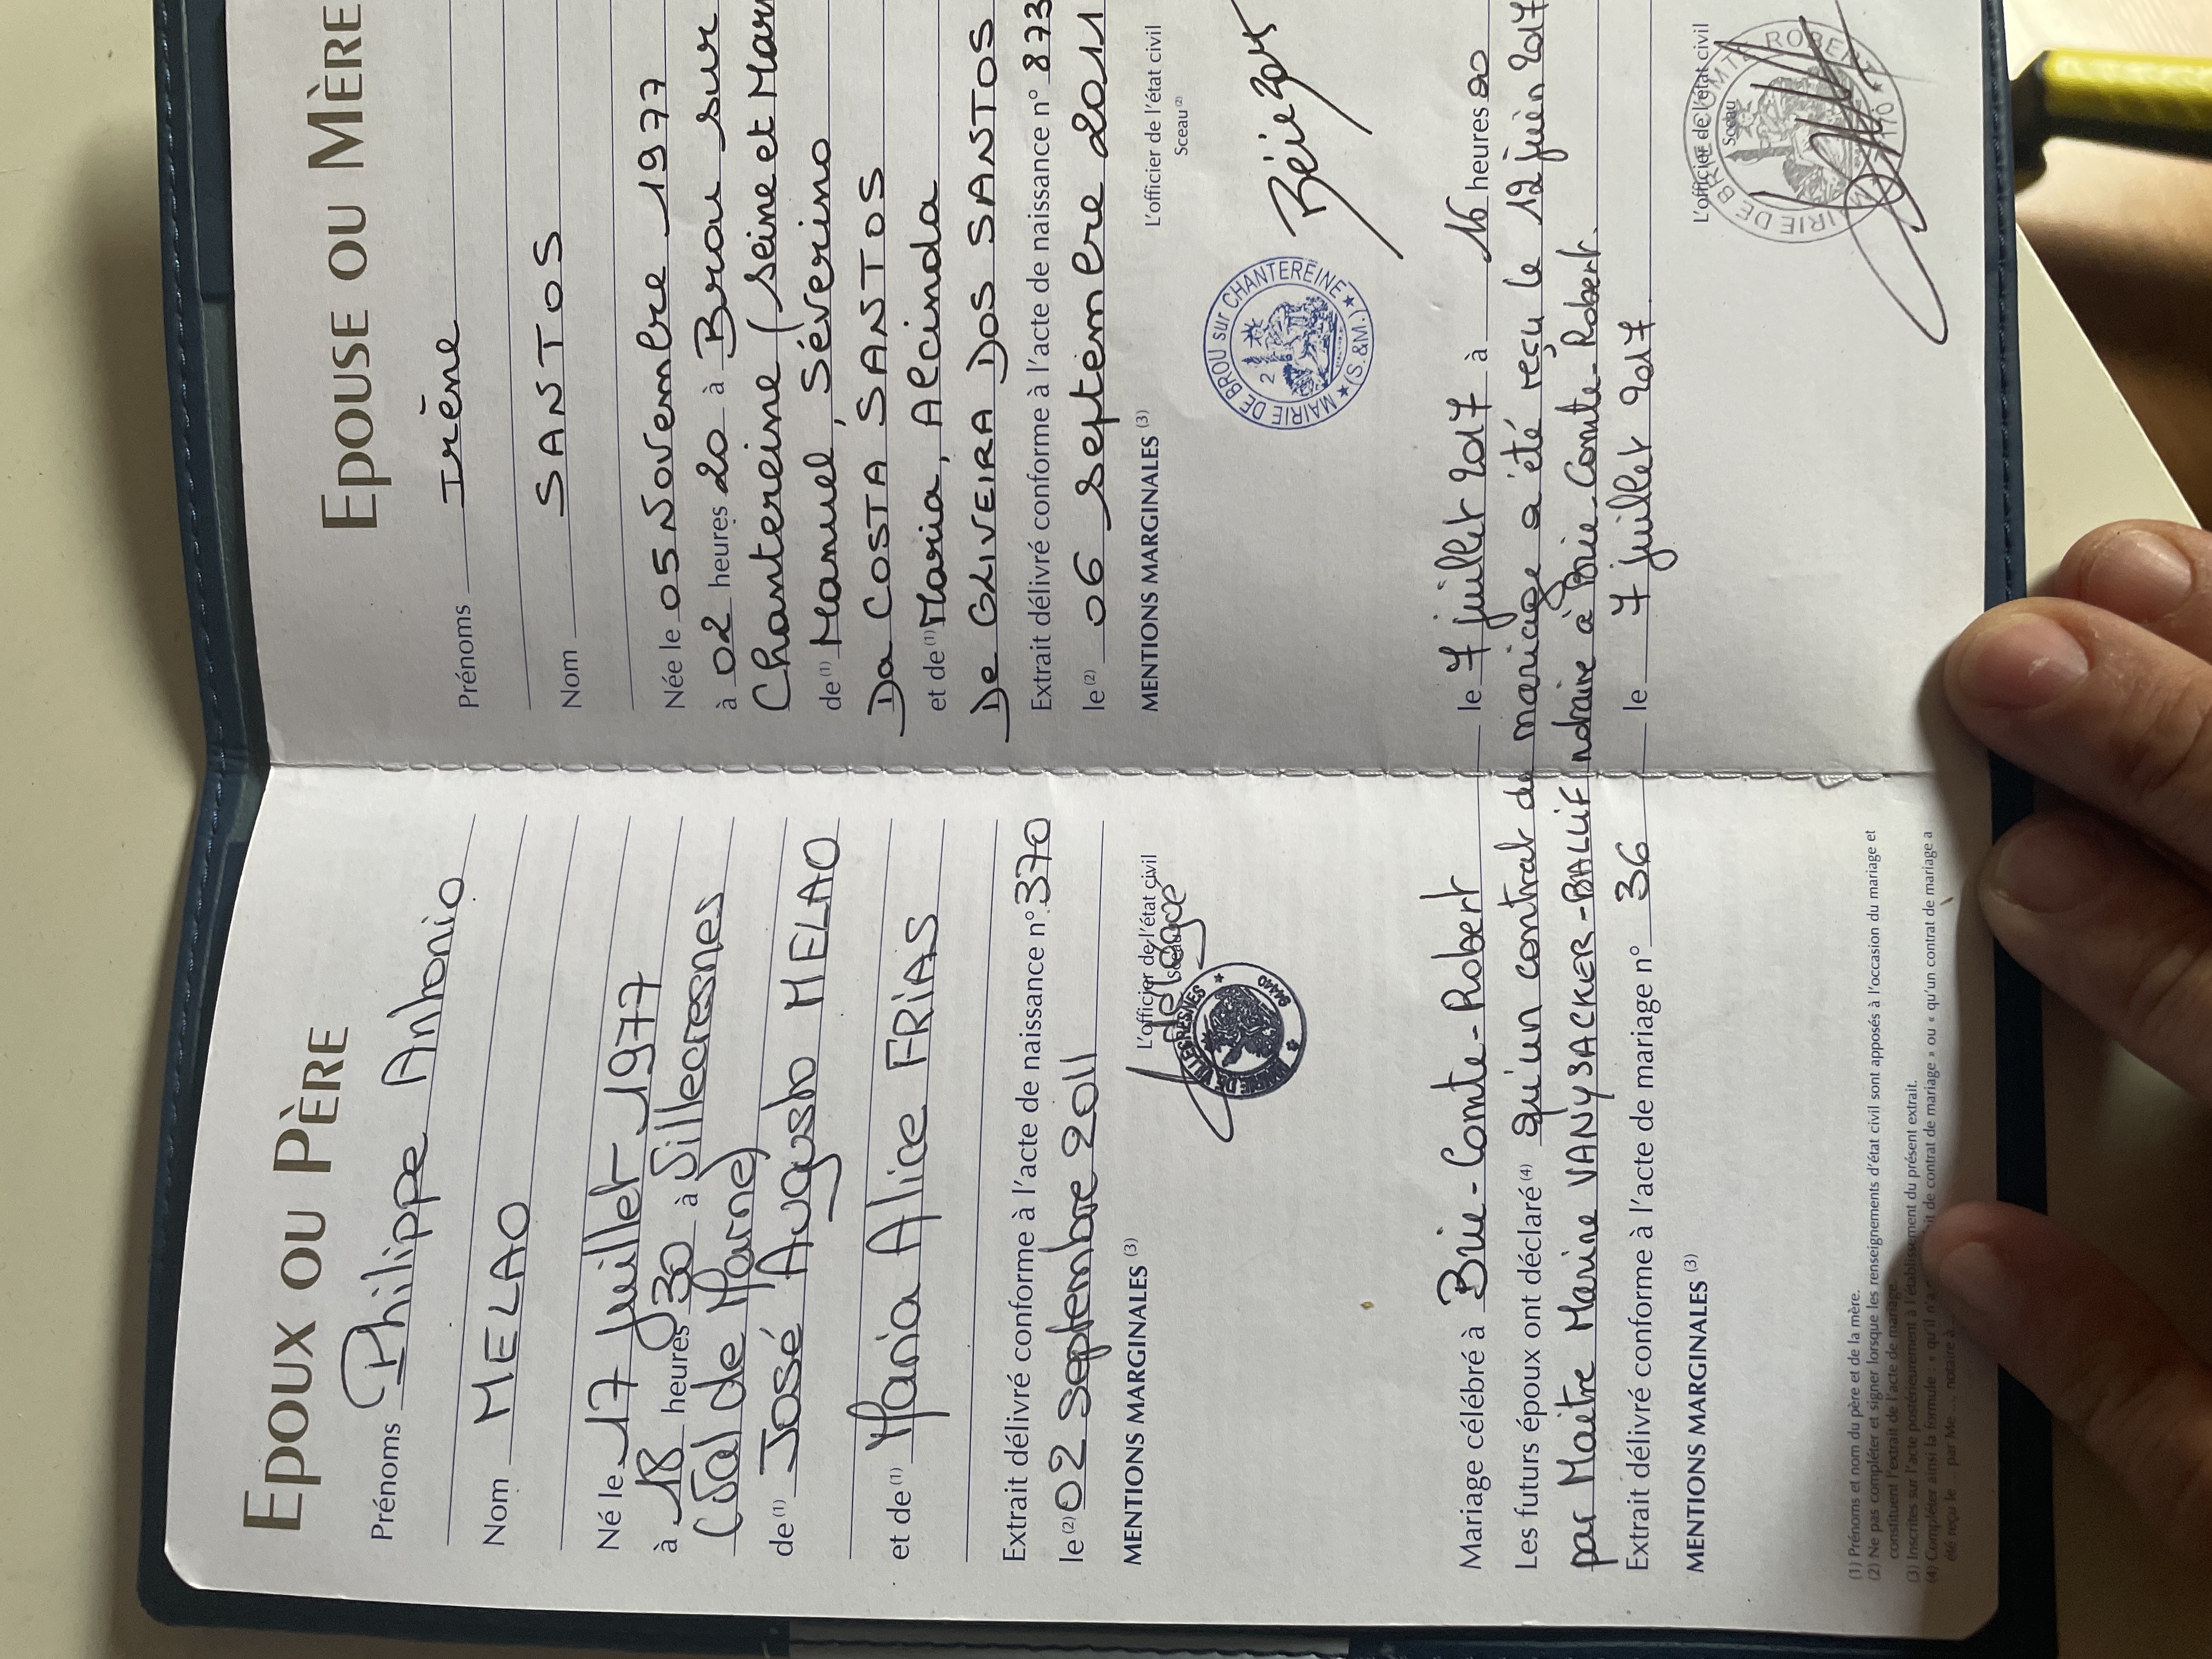 EPOUX OU PÈRE
Prénoms Philippe Antonio
Nom MELAO
Né le 17 juillet 1977
à 18 heures 30 à Villecresnes
(Val de Marne)
de (1) José Augusto MELAO
et de (1) Maria Alice FRIAS
Extrait délivré conforme à l'acte de naissance n° 370
le (2) 02 septembre 2011
L'officier de l'état civil
MENTIONS MARGINALES (3)
MAIRIE DE VILLECRESNES
94440
EPOUSE OU MÈRE
Prénoms Irène
Nom SANTOS
Née le 05 Novembre 1977
à 02 heures 20 à Brou sur
Chantereine (seine et Mar
de (1) Manuel, Séverino
Da COSTA SANTOS
et de (1) Maria, Alcinda
De OLIVEIRA DOS SANTOS
Extrait délivré conforme à l'acte de naissance n° 873
le (2) 06 septembre 2011
L'officier de l'état civil
Sceau (2)
MENTIONS MARGINALES (3)
MAIRIE DE BROU sur CHANTEREINE
(S.&M.)
2
Mariage célébré à Brie-Comte-Robert le 7 juillet 2017 à 16 heures 00
Les futurs époux ont déclaré (4) qu'un contrat de mariage a été reçu le 12 juin 2017
par Maître Marine VANYSACKER-BALLIF notaire à Brie-Comte-Robert.
Extrait délivré conforme à l'acte de mariage n° 36 le 7 juillet 2017
L'officier de l'état civil
Sceau
MAIRIE DE BRIE COMTE ROBERT
MENTIONS MARGINALES (3)
(1) Prénoms et nom du père et de la mère.
(2) Ne pas compléter et signer lorsque les renseignements d'état civil sont apposés à l'occasion du mariage et
constituent l'extrait de l'acte de mariage.
(3) Inscrites sur l'acte postérieurement à l'établissement du présent extrait.
(4) Compléter ainsi la formule : « qu'il n'a it de contrat de mariage » ou « qu'un contrat de mariage a
été reçu le ... par Me ... notaire à